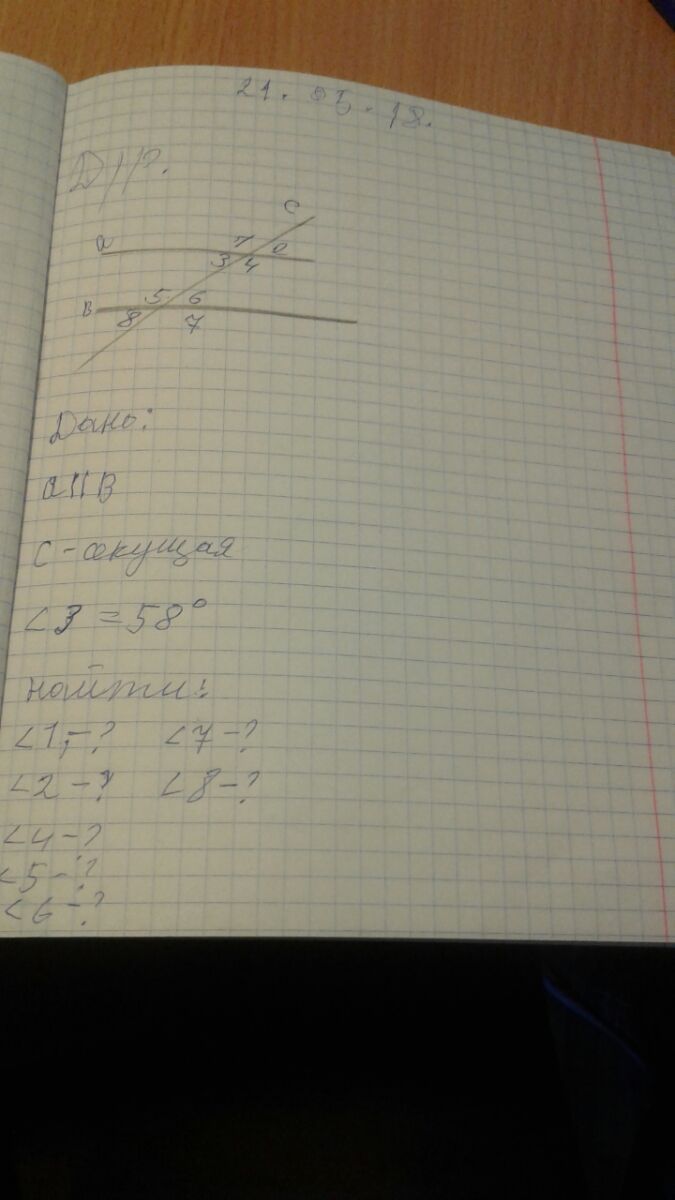 21. 05. 18.
Д/р.
c
a 7 2
3 4
5 6
B
8 7
Дано:
a||B
C-секущая
<3 = 58°
найти:
<1,-? <7-?
<2-? <8-?
<4-?
<5-?
<6-?